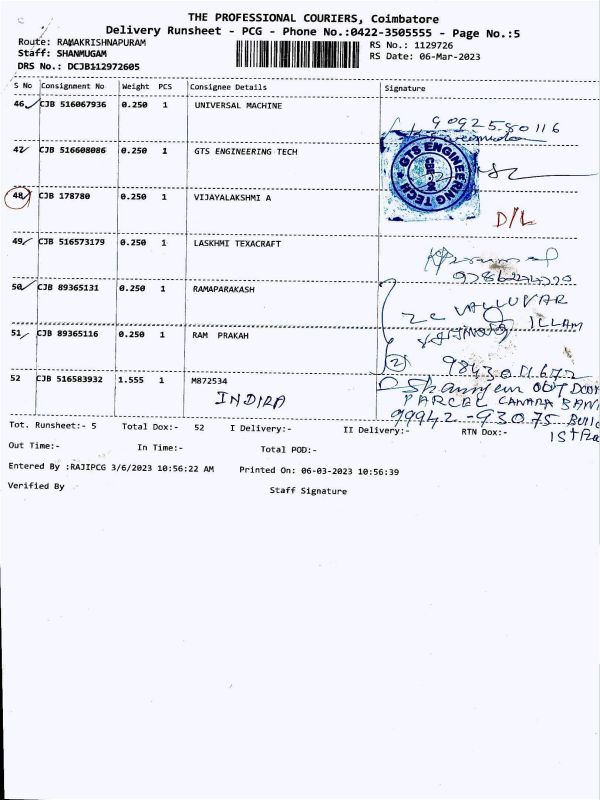 THE PROFESSIONAL COURIERS, Coimbatore
Delivery Runsheet - PCG - Phone No.:0422-3505555 - Page No.:5
Route: RAMAKRISHNAPURAM
Staff: SHANMUGAM
DRS No.: DCJB112972605
RS No.: 1129726
RS Date: 06-Mar-2023
S No Consignment No Weight PCS Consignee Details Signature
46 CJB 516067936 0.250 1 UNIVERSAL MACHINE
9092580116
47 CJB 516608086 0.250 1 GTS ENGINEERING TECH
GTS ENGINEERING TECH
48 CJB 178780 0.250 1 VIJAYALAKSHMI A D/L
49 CJB 516573179 0.250 1 LASKHMI TEXACRAFT
50 CJB 89365131 0.250 1 RAMAPARAKASH
VALLUVAR
ILLAM
51 CJB 89365116 0.250 1 RAM PRAKAH
2 9843011672
52 CJB 516583932 1.555 1 M872534
INDIRA
PARCEL CANARA BAN
99942-93075
Tot. Runsheet:- 5 Total Dox:- 52 I Delivery:- II Delivery:- RTN Dox:-
Out Time:- In Time:- Total POD:-
Entered By :RAJIPCG 3/6/2023 10:56:22 AM Printed On: 06-03-2023 10:56:39
Verified By Staff Signature